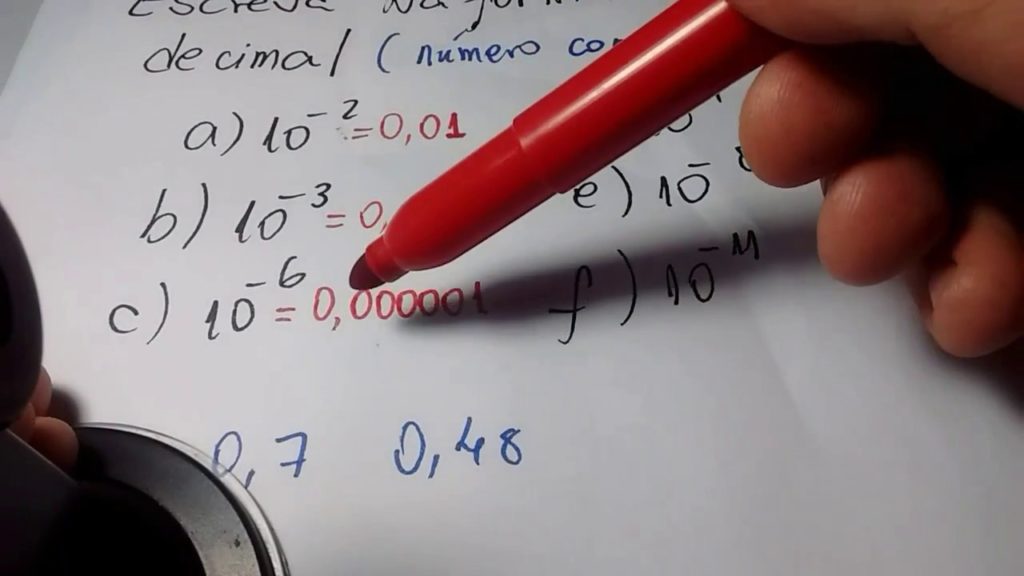 Escreva na
decimal (número
a) 10⁻² = 0,01
b) 10⁻³ = 0,
e) 10⁻
c) 10⁻⁶ = 0,000001
f) 10⁻¹¹
0,7 0,48